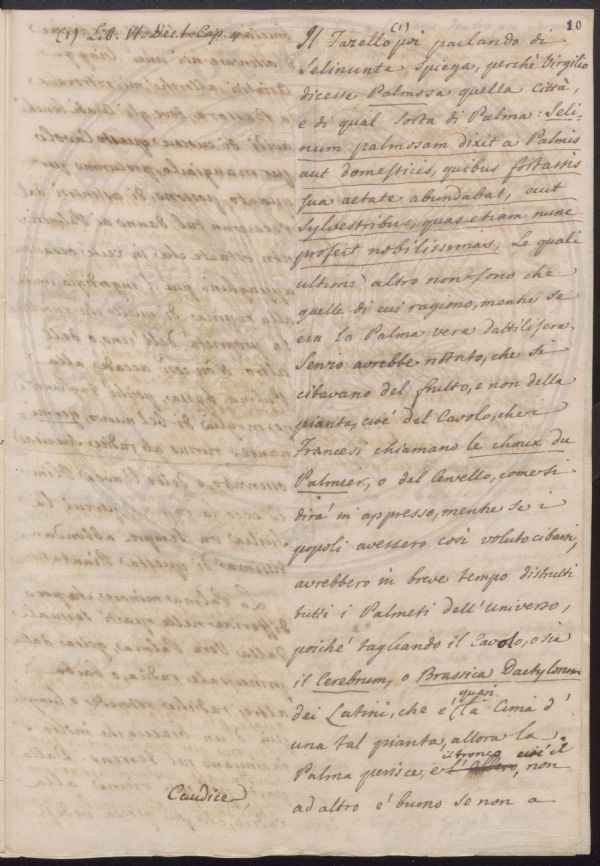 10
(1) Lib. VI. Dec. I. Cap. 4
Il Fazello (1) poi parlando di
Selinunte spiega, perchè Virgilio
dicesse Palmosa quella Città,
e di qual sorta di Palma: Seli-
num palmosam dixit a Palmis
aut domesticis, quibus fortassis
sua aetate abundabat, aut
sylvestribus, quas etiam nunc
profert nobilissimas, Le quali
ultime altro non sono che
quelle di cui ragiono, mentre se
era la Palma vera dattilifera,
Servio avrebbe notato, che si
cibavano del frutto, e non della
pianta, cioè del Cavolo, che i
Francesi chiamano le choux du
Palmier, o del Cervello, come si
dirà in appresso, mentre se i
popoli avessero così voluto cibarsi,
avrebbero in breve tempo distrutti
tutti i Palmeti dell'universo,
poichè tagliando il Cavolo, o sia
il Cerebrum, o Brassica Dactylorum
dei Latini, che è quasi la Cima d'
una tal pianta, allora la
Palma perisce, e il tronco cioè il
Caudice, non
ad altro è buono se non a